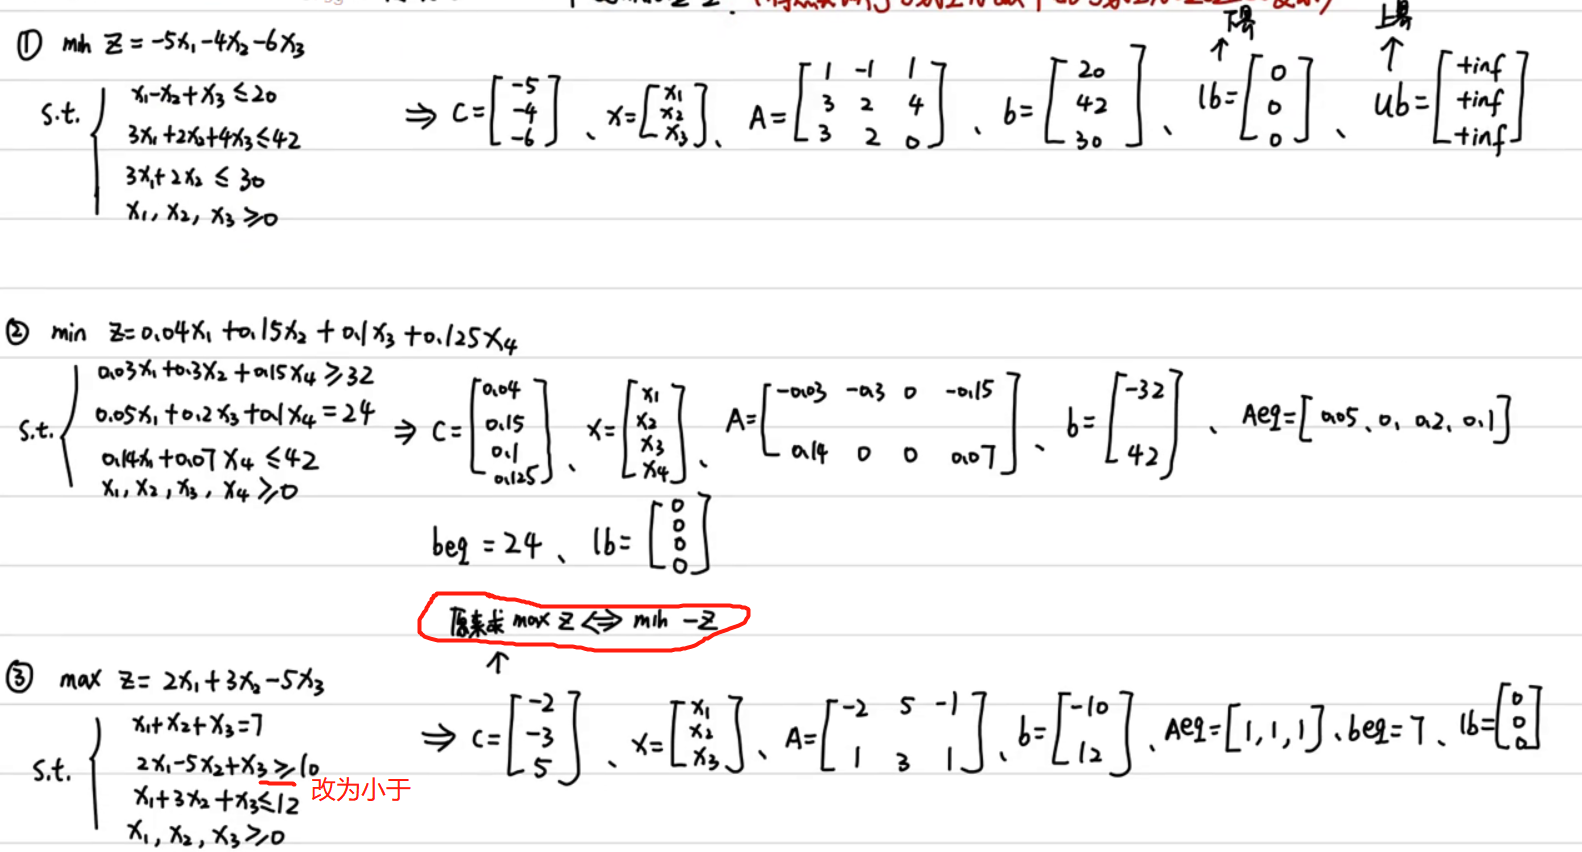 下界 上界
① min Z = -5x₁-4x₂-6x₃
s.t. { x₁-x₂+x₃ ≤20
3x₁+2x₂+4x₃≤42
3x₁+2x₂ ≤ 30
x₁, x₂, x₃ ≥0
⇒ C=[-5 -4 -6]、x=[x₁ x₂ x₃]、A=[1 -1 1; 3 2 4; 3 2 0]、b=[20 42 30]、lb=[0 0 0]、ub=[+inf +inf +inf]
② min Z=0.04x₁+0.15x₂+0.1x₃+0.125x₄
s.t. { 0.03x₁+0.3x₂+0.15x₄≥32
0.05x₁+0.2x₃+0.1x₄=24
0.14x₁+0.07x₄≤42
x₁, x₂, x₃, x₄≥0
⇒ C=[0.04 0.15 0.1 0.125]、x=[x₁ x₂ x₃ x₄]、A=[-0.03 -0.3 0 -0.15; 0.14 0 0 0.07]、b=[-32 42]、Aeq=[0.05、0、0.2、0.1]
beq=24、lb=[0 0 0 0]
原来求 max Z ⇔ min -Z
↑
③ max Z= 2x₁+3x₂-5x₃
s.t. { x₁+x₂+x₃=7
2x₁-5x₂+x₃≥10 改为小于
x₁+3x₂+x₃≤12
x₁, x₂, x₃≥0
⇒ C=[-2 -3 5]、x=[x₁ x₂ x₃]、A=[-2 5 -1; 1 3 1]、b=[-10 12]、Aeq=[1,1,1]、beq=7、lb=[0 0 0]